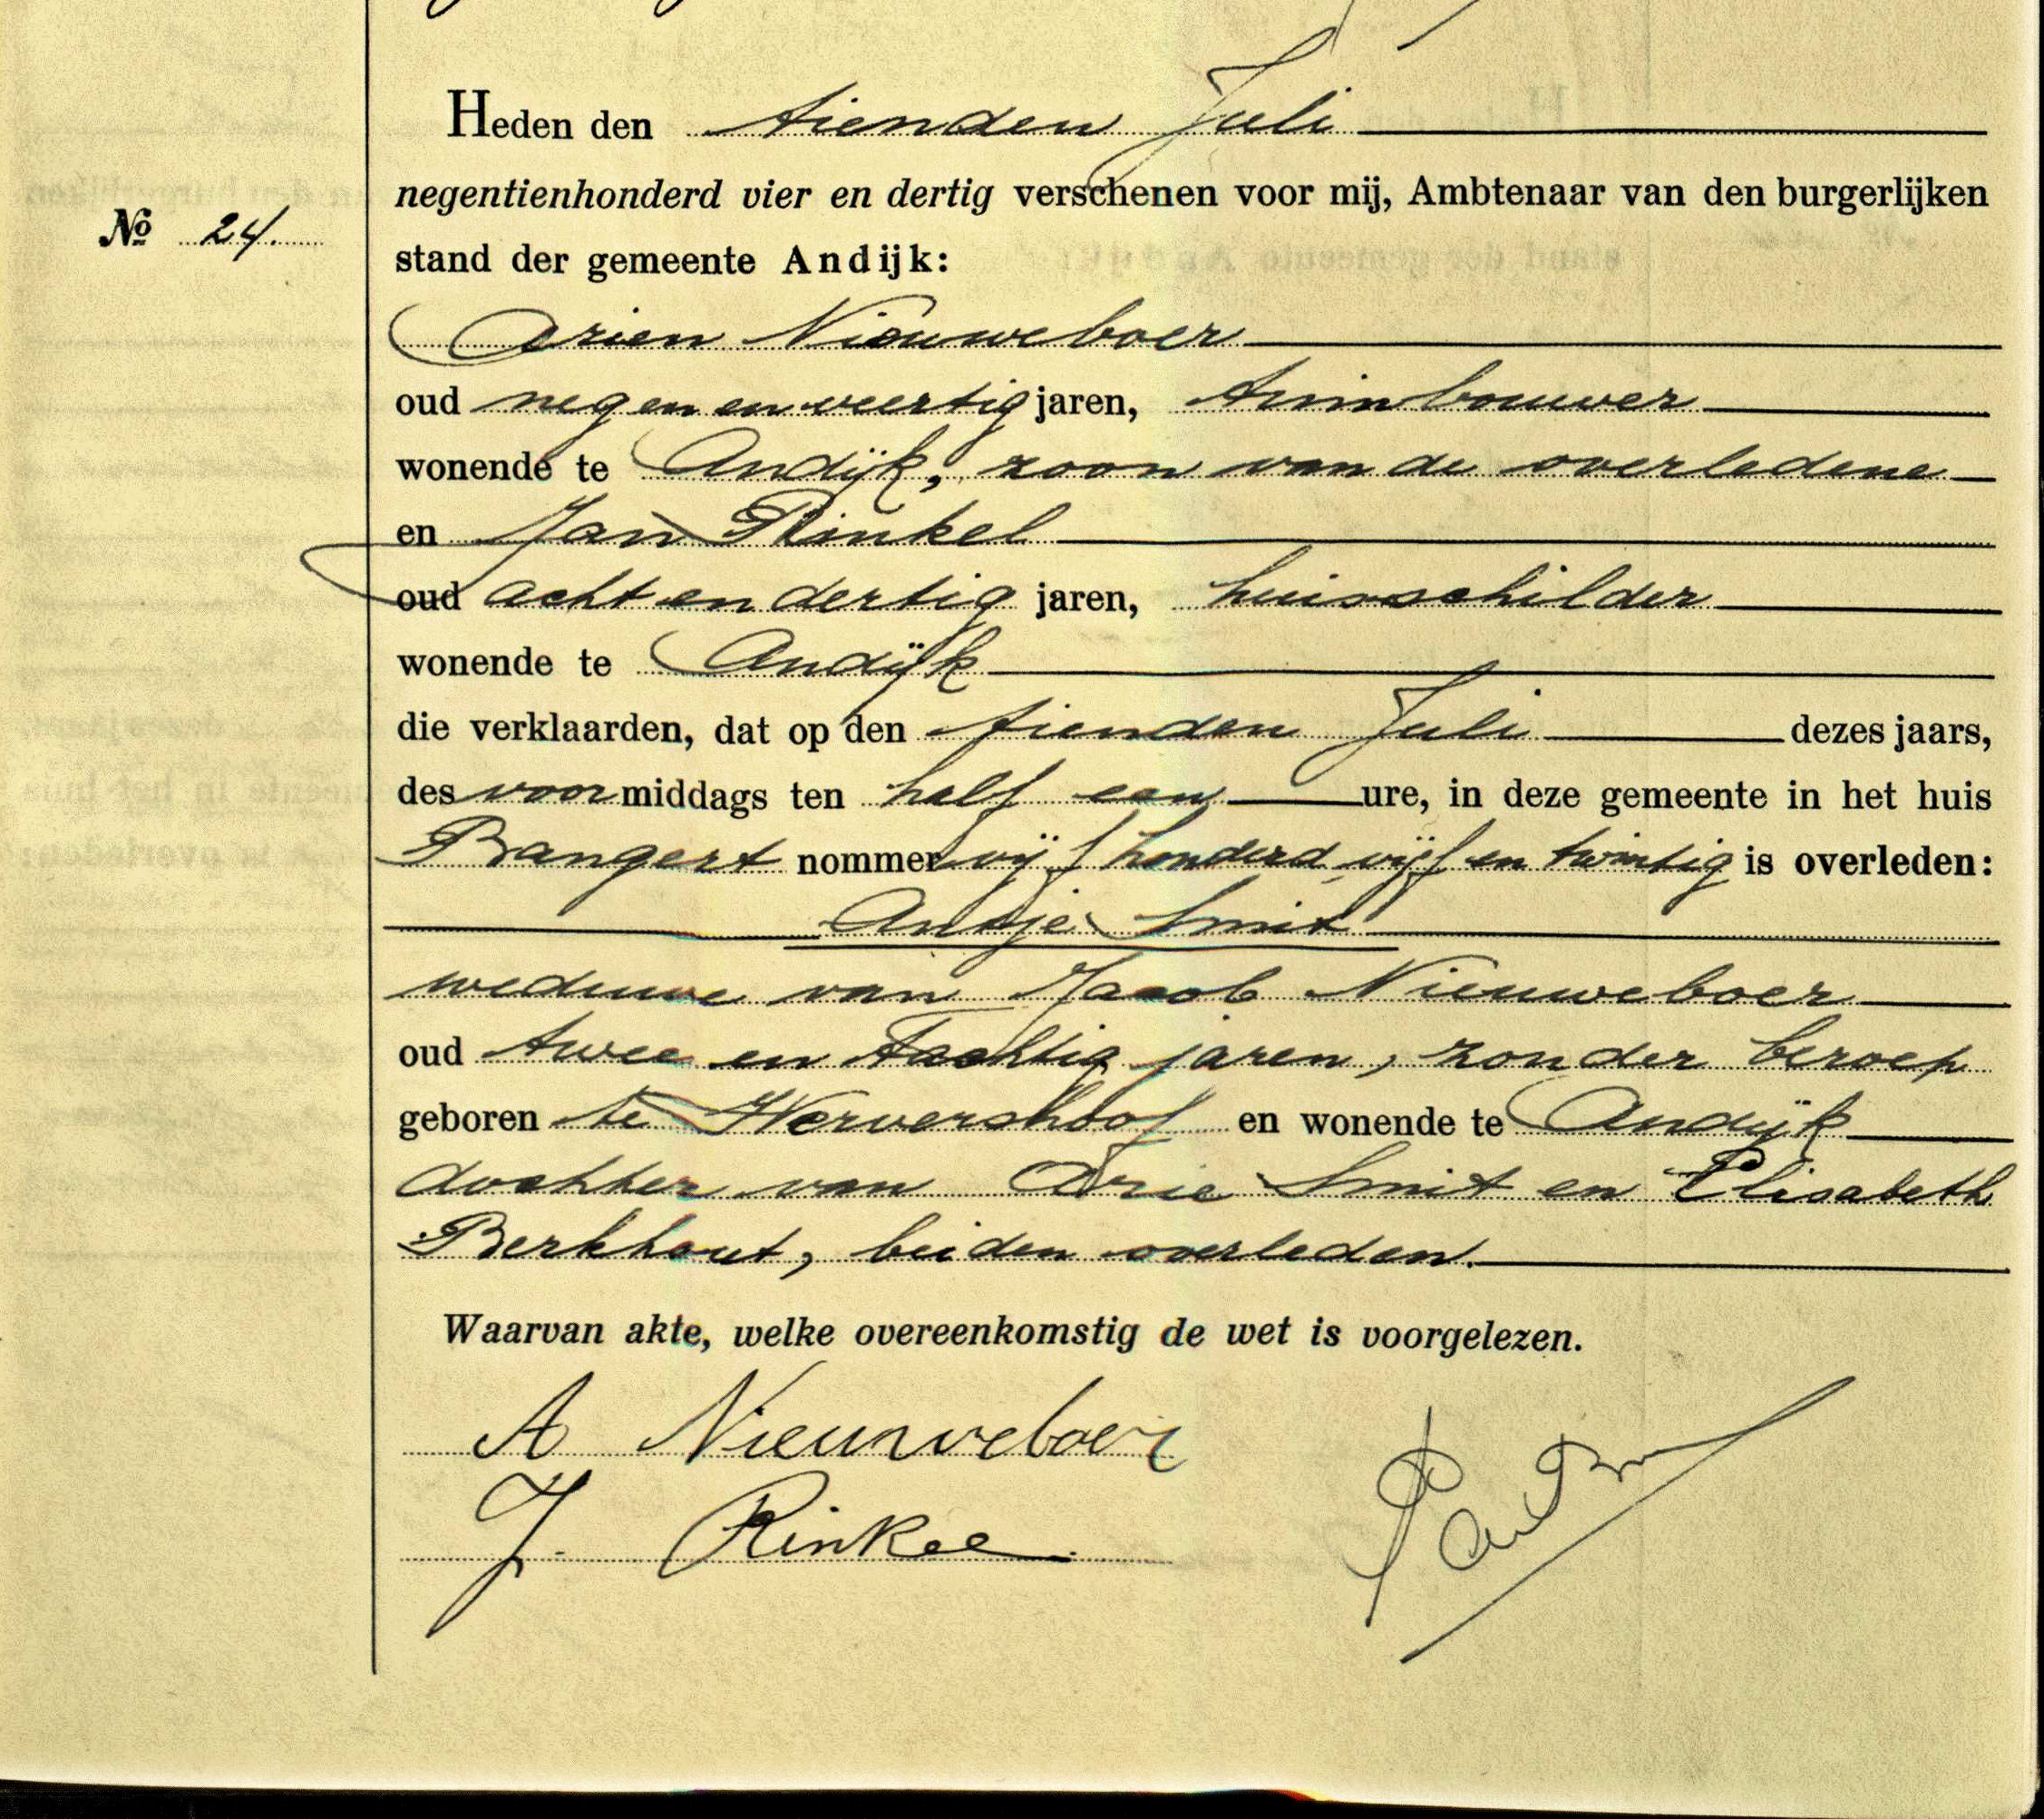 Heden den tienden Juli
negentienhonderd vier en dertig verschenen voor mij, Ambtenaar van den burgerlijken
№ 24.
stand der gemeente Andijk:
Arien Nieuweboer
oud negen en veertig jaren, tuinbouwer
wonende te Andijk, zoon van de overledene
en Jan Rinkel
oud acht en dertig jaren, huisschilder
wonende te Andijk
die verklaarden, dat op den tienden Juli dezes jaars,
des voormiddags ten half een ure, in deze gemeente in het huis
Bangert nommer vijf honderd vijf en twintig is overleden:
Antje Smit
weduwe van Jacob Nieuweboer
oud twee en tachtig jaren, zonder beroep
geboren te Wervershoof en wonende te Andijk
dochter van Arie Smit en Elisabeth
Berkhout, beiden overleden.
Waarvan akte, welke overeenkomstig de wet is voorgelezen.
A Nieuweboer
J. Rinkel